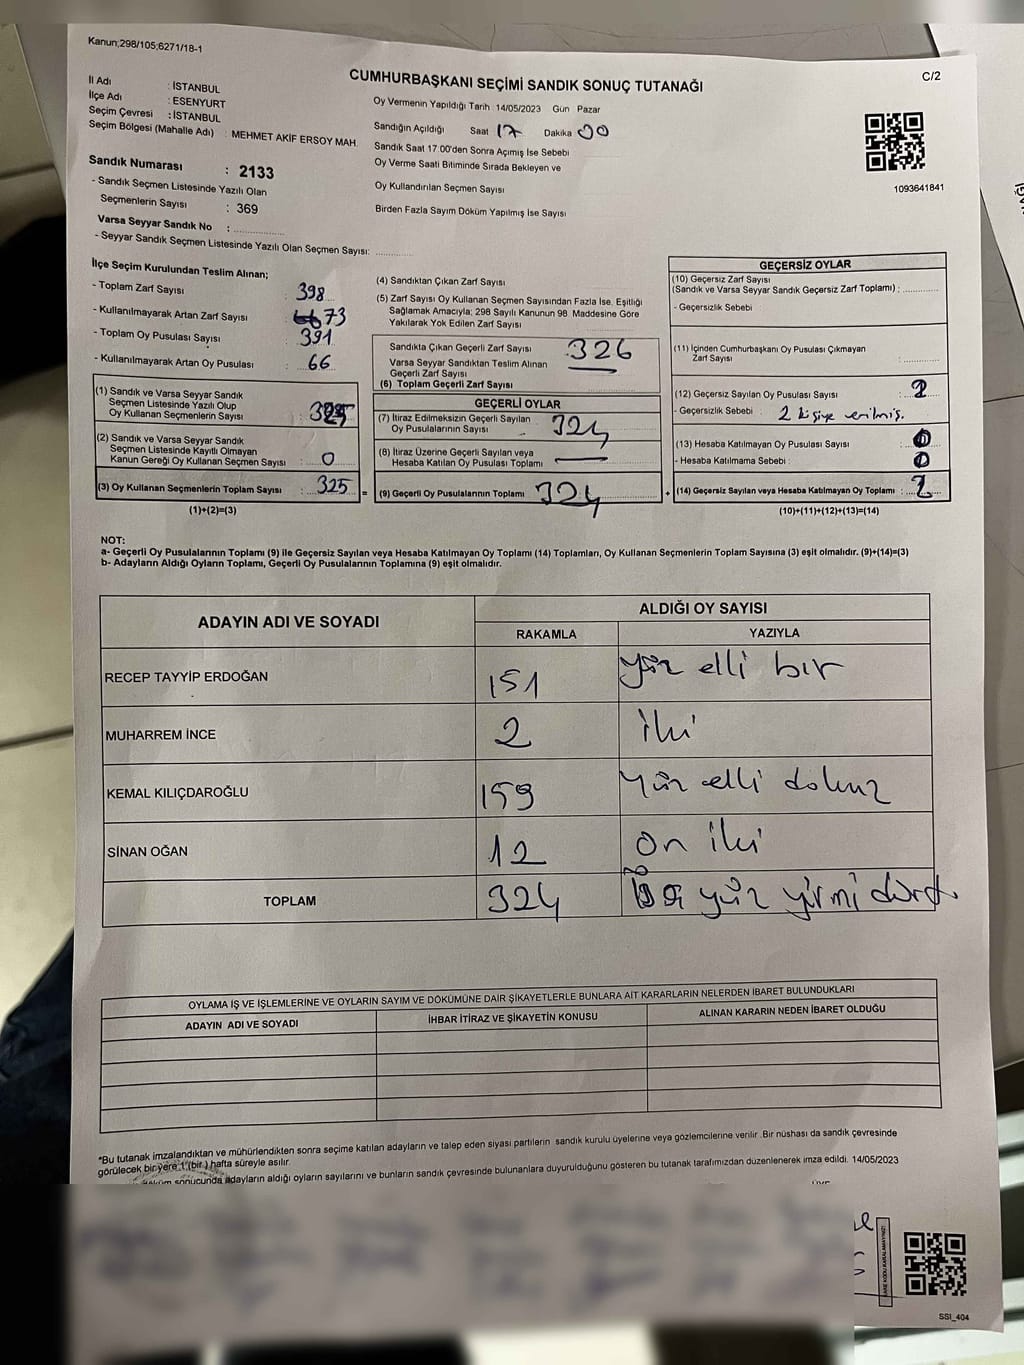 Kanun;298/105;6271/18-1
C/2
CUMHURBAŞKANI SEÇİMİ SANDIK SONUÇ TUTANAĞI
İl Adı : İSTANBUL
İlçe Adı : ESENYURT
Seçim Çevresi : İSTANBUL
Seçim Bölgesi (Mahalle Adı) : MEHMET AKİF ERSOY MAH.
Sandık Numarası : 2133
- Sandık Seçmen Listesinde Yazılı Olan
Seçmenlerin Sayısı : 369
Varsa Seyyar Sandık No :
- Seyyar Sandık Seçmen Listesinde Yazılı Olan Seçmen Sayısı:
Oy Vermenin Yapıldığı Tarih : 14/05/2023 Gün Pazar
Sandığın Açıldığı Saat 17 Dakika 00
Sandık Saat 17.00'den Sonra Açımış İse Sebebi
Oy Verme Saati Bitiminde Sırada Bekleyen ve
Oy Kullandırılan Seçmen Sayısı
Birden Fazla Sayım Döküm Yapılmış İse Sayısı
1093641841
İlçe Seçim Kurulundan Teslim Alınan;
- Toplam Zarf Sayısı : 398
- Kullanılmayarak Artan Zarf Sayısı : 73
- Toplam Oy Pusulası Sayısı : 391
- Kullanılmayarak Artan Oy Pusulası : 66
(1) Sandık ve Varsa Seyyar Sandık
Seçmen Listesinde Yazılı Olup
Oy Kullanan Seçmenlerin Sayısı : 325
(2) Sandık ve Varsa Seyyar Sandık
Seçmen Listesinde Kayıtlı Olmayan
Kanun Gereği Oy Kullanan Seçmen Sayısı : 0
(3) Oy Kullanan Seçmenlerin Toplam Sayısı : 325
(1)+(2)=(3)
(4) Sandıktan Çıkan Zarf Sayısı
(5) Zarf Sayısı Oy Kullanan Seçmen Sayısından Fazla İse, Eşitliği
Sağlamak Amacıyla; 298 Sayılı Kanunun 98. Maddesine Göre
Yakılarak Yok Edilen Zarf Sayısı
Sandıkta Çıkan Geçerli Zarf Sayısı 326
Varsa Seyyar Sandıktan Teslim Alınan
Geçerli Zarf Sayısı
(6) Toplam Geçerli Zarf Sayısı
GEÇERLİ OYLAR
(7) İtiraz Edilmeksizin Geçerli Sayılan
Oy Pusulalarının Sayısı 324
(8) İtiraz Üzerine Geçerli Sayılan veya
Hesaba Katılan Oy Pusulası Toplamı
= (9) Geçerli Oy Pusulalarının Toplamı 324
GEÇERSİZ OYLAR
(10) Geçersiz Zarf Sayısı
(Sandık ve Varsa Seyyar Sandık Geçersiz Zarf Toplamı) :
- Geçersizlik Sebebi
(11) İçinden Cumhurbaşkanı Oy Pusulası Çıkmayan
Zarf Sayısı :
(12) Geçersiz Sayılan Oy Pusulası Sayısı : 2
- Geçersizlik Sebebi : 2 kişiye verilmiş.
(13) Hesaba Katılmayan Oy Pusulası Sayısı : 0
- Hesaba Katılmama Sebebi : 0
+ (14) Geçersiz Sayılan veya Hesaba Katılmayan Oy Toplamı : 2
(10)+(11)+(12)+(13)=(14)
NOT:
a- Geçerli Oy Pusulalarının Toplamı (9) ile Geçersiz Sayılan veya Hesaba Katılmayan Oy Toplamı (14) Toplamları, Oy Kullanan Seçmenlerin Toplam Sayısına (3) eşit olmalıdır. (9)+(14)=(3)
b- Adayların Aldığı Oyların Toplamı, Geçerli Oy Pusulalarının Toplamına (9) eşit olmalıdır.
ADAYIN ADI VE SOYADI ALDIĞI OY SAYISI
RAKAMLA YAZIYLA
RECEP TAYYİP ERDOĞAN 151 yüz elli bir
MUHARREM İNCE 2 iki
KEMAL KILIÇDAROĞLU 159 yüz elli dokuz
SİNAN OĞAN 12 on iki
TOPLAM 324 yüz yirmi dört
OYLAMA İŞ VE İŞLEMLERİNE VE OYLARIN SAYIM VE DÖKÜMÜNE DAİR ŞİKAYETLERLE BUNLARA AİT KARARLARIN NELERDEN İBARET BULUNDUKLARI
ADAYIN ADI VE SOYADI İHBAR İTİRAZ VE ŞİKAYETİN KONUSU ALINAN KARARIN NEDEN İBARET OLDUĞU
*Bu tutanak imzalandıktan ve mühürlendikten sonra seçime katılan adayların ve talep eden siyasi partilerin sandık kurulu üyelerine veya gözlemcilerine verilir. Bir nüshası da sandık çevresinde
görülecek bir yere 1 (bir) hafta süreyle asılır.
sonucunda adayların aldığı oyların sayılarını ve bunların sandık çevresinde bulunanlara duyurulduğunu gösteren bu tutanak tarafımızdan düzenlenerek imza edildi. 14/05/2023
SSI_404